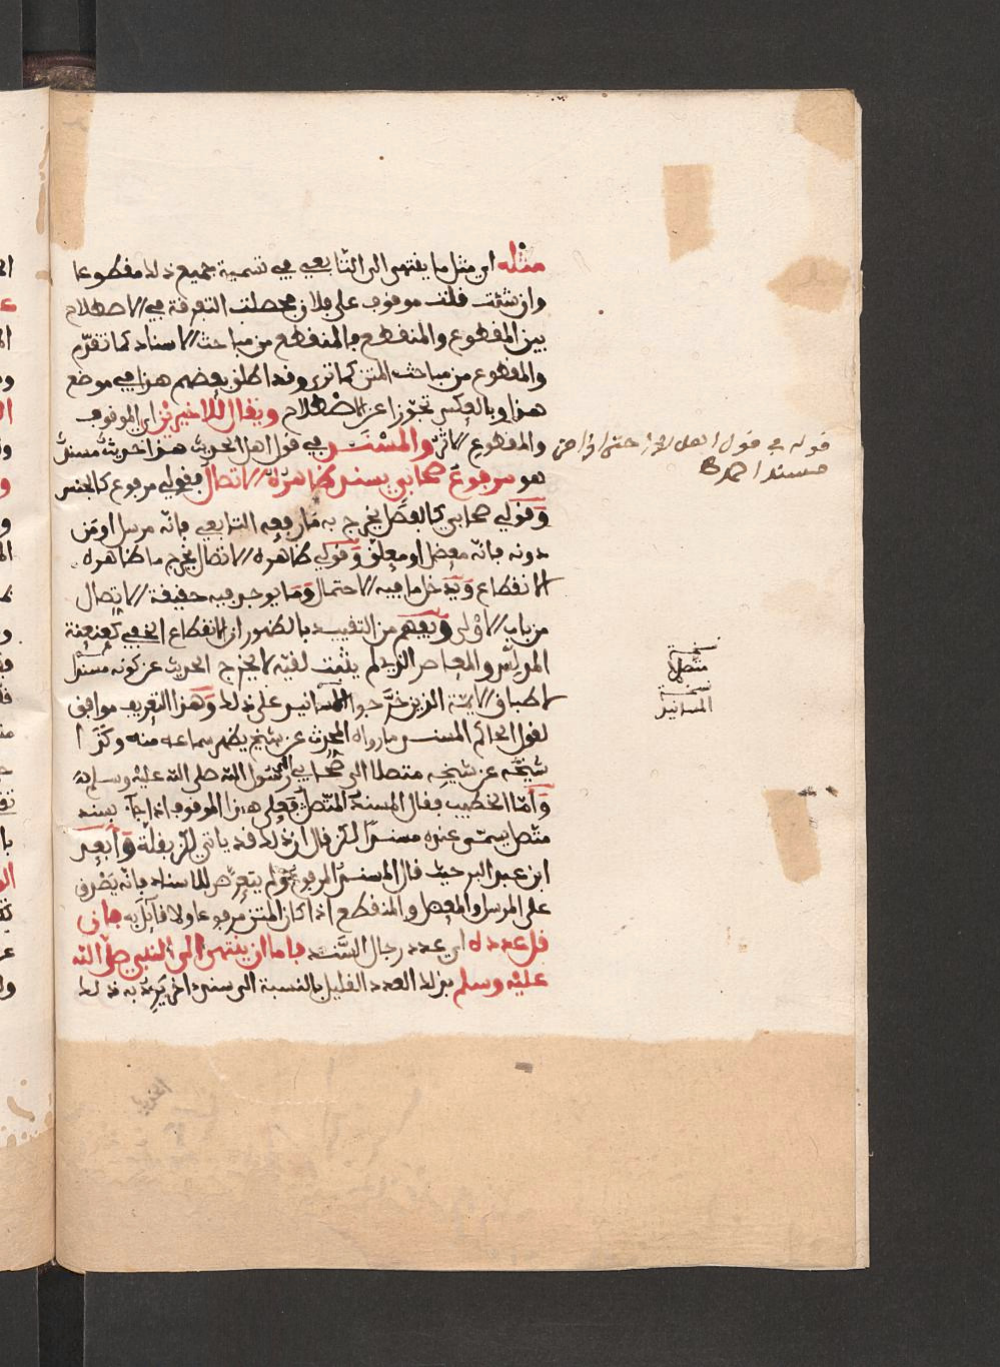 مثله اي مثل ما ينتهي الى التابعي في تسمية جميع ذلك مقطوعا
وان شئت قلت موقوف على فلان فحصلت التفرقة في الاصطلاح
بين المقطوع والمنقطع فالمنقطع من مباحث الاسناد كما تقدّم
والمقطوع من مباحث المتن كما ترى وقد اطلق بعضهم هذا في موضع
هذا وبالعكس تجوّزا عن الاصطلاح ويقال للاخيرين اي الموقوف
والمقطوع الاثر والمسند في قول اهل الحديث هذا حديث مسند
هو مرفوع صحابي بسند ظاهره الاتصال فقولي مرفوع كالجنس
وقولي صحابي كالفصل يخرج به ما رفعه التابعي فانّه مرسل او من
دونه فانّه معضل او معلّق وقولي ظاهره الاتصال يخرج ما ظاهره
الانقطاع ويدخل ما فيه الاحتمال وما يوجد فيه حقيقة الاتصال
من باب الاولى ويفهم من التقييد بالظهور ان الانقطاع الخفي كعنعنة
المدلّس والمعاصر الذي لم يثبت لقيّه لا يخرج الحديث عن كونه مسندا
لاطباق الايمّة الذين خرّجوا المسانيد على ذلك وهذا التعريف موافق
لقول الحاكم المسند ما رواه المحدث عن شيخ يظهر سماعه منه وكذا
شيخه عن شيخه متصلا الى صحابي الى رسول الله صلى الله عليه وسلم
وامّا الخطيب فقال المسند المتّصل فعلى هذا الموقوف اذا جاء بسند
متّصل يسمّى عنده مسندا لكن قال ان ذلك قد ياتي لكن بقلّة وابعد
ابن عبد البر حيث قال المسند المرفوع ولم يتعرّض للاسناد فانّه يصدق
على المرسل والمعضل والمنقطع اذا كان المتن مرفوعا ولا قايل به فان
قل عدده اي عدد رجال السّند فاما ان ينتهي الى النبي صلّى الله
عليه وسلم بذلك العدد القليل بالنسبة الى سند اخر يَرِدُ به ذلك
قوله في قول اهل
مسندا
متصل
المسانيد
الحديث